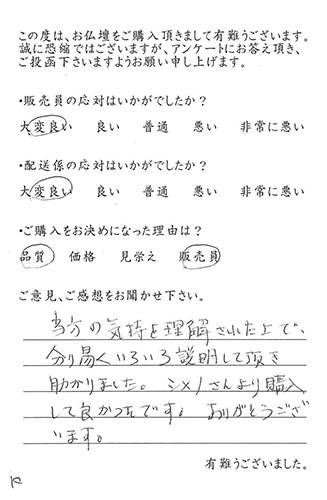 この度は、お仏壇をご購入頂きまして有難うございます。
誠に恐縮ではございますが、アンケートにお答え頂き、
ご投函下さいますようお願い申し上げます。
・販売員の応対はいかがでしたか？
大変良い 良い 普通 悪い 非常に悪い
・配送係の応対はいかがでしたか？
大変良い 良い 普通 悪い 非常に悪い
・ご購入をお決めになった理由は？
品質 価格 見栄え 販売員
ご意見、ご感想をお聞かせ下さい。
当分の気持を理解された上で、
分り易くいろいろ説明して頂き
助かりました。 シメノさんより購入
して良かったです。 ありがとうござ
います。
有難うございました。